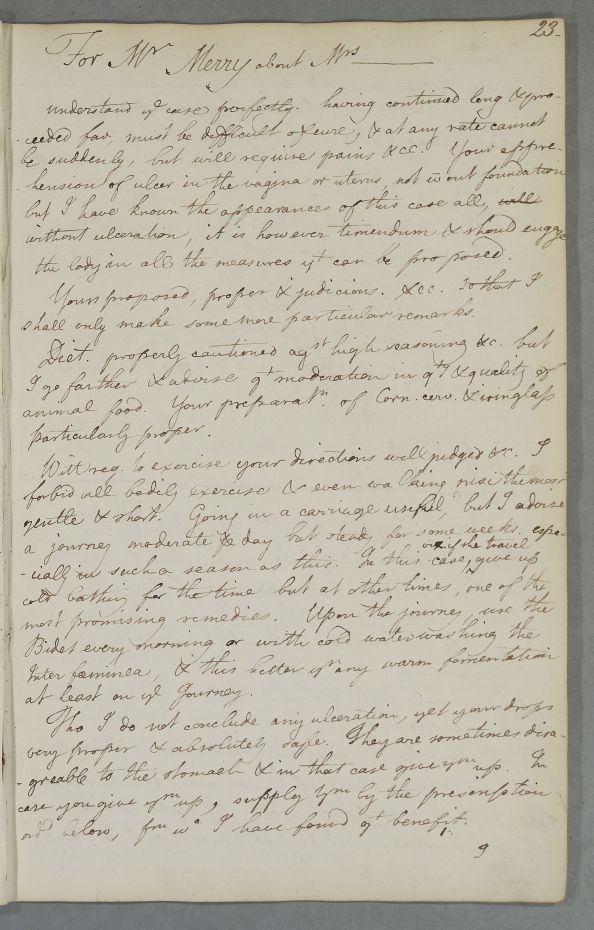 23.
For Mr Merry about Mrs ———
understand ye case perfectly. having continued long & pro-
-ceeded far, must be difficult of cure, & at any rate cannot
be suddenly, but will require pains &cc. Your appre-
hension of ulcer in the vagina or uterus, not wout foundation
but I have known the appearances of this case all, will
without ulceration, it is however timendum & should engage
the lady in all the measures yt can be proposed.
Yours proposed, proper & judicious. &cc. so that I
shall only make some more particular remarks.
Diet. properly cautioned agst high seasoning &c. but
I go farther & advise gt moderation in qty & quality of
animal food. Your preparatn. of Corn. cerv. & isinglass
particularly proper.
With reg. to exercise your directions well judged &c. I
forbid all bodily exercise & even walking nisi the most
gentle & short. Going in a carriage useful, but I advise
a journey moderate day but steady for some weeks. espe-
viz. if she travel
-ially in such a season as this. In this case, give up
cold bathing for the time but at other times, one of the
most promising remedies. Upon the journey use the
Bidet every morning or with cold water washing the
Inter fæminea, & this better yn any warm fomentation
at least on ye Journey.
Tho I do not conclude any ulceration, yet your drops
very proper & absolutely safe. They are sometimes disa-
-greable to the stomach & in that case give ym up. In
case you give ym up, supply ym by the prescription
ord below, frm wc I have found gt benefit.